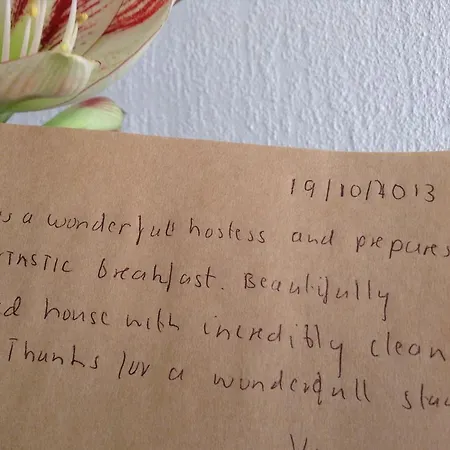 19/10/2013
is a wonderfull hostess and prepares
breakfast. Beautifully
house with incredibly clean
Thanks for a wonderfull